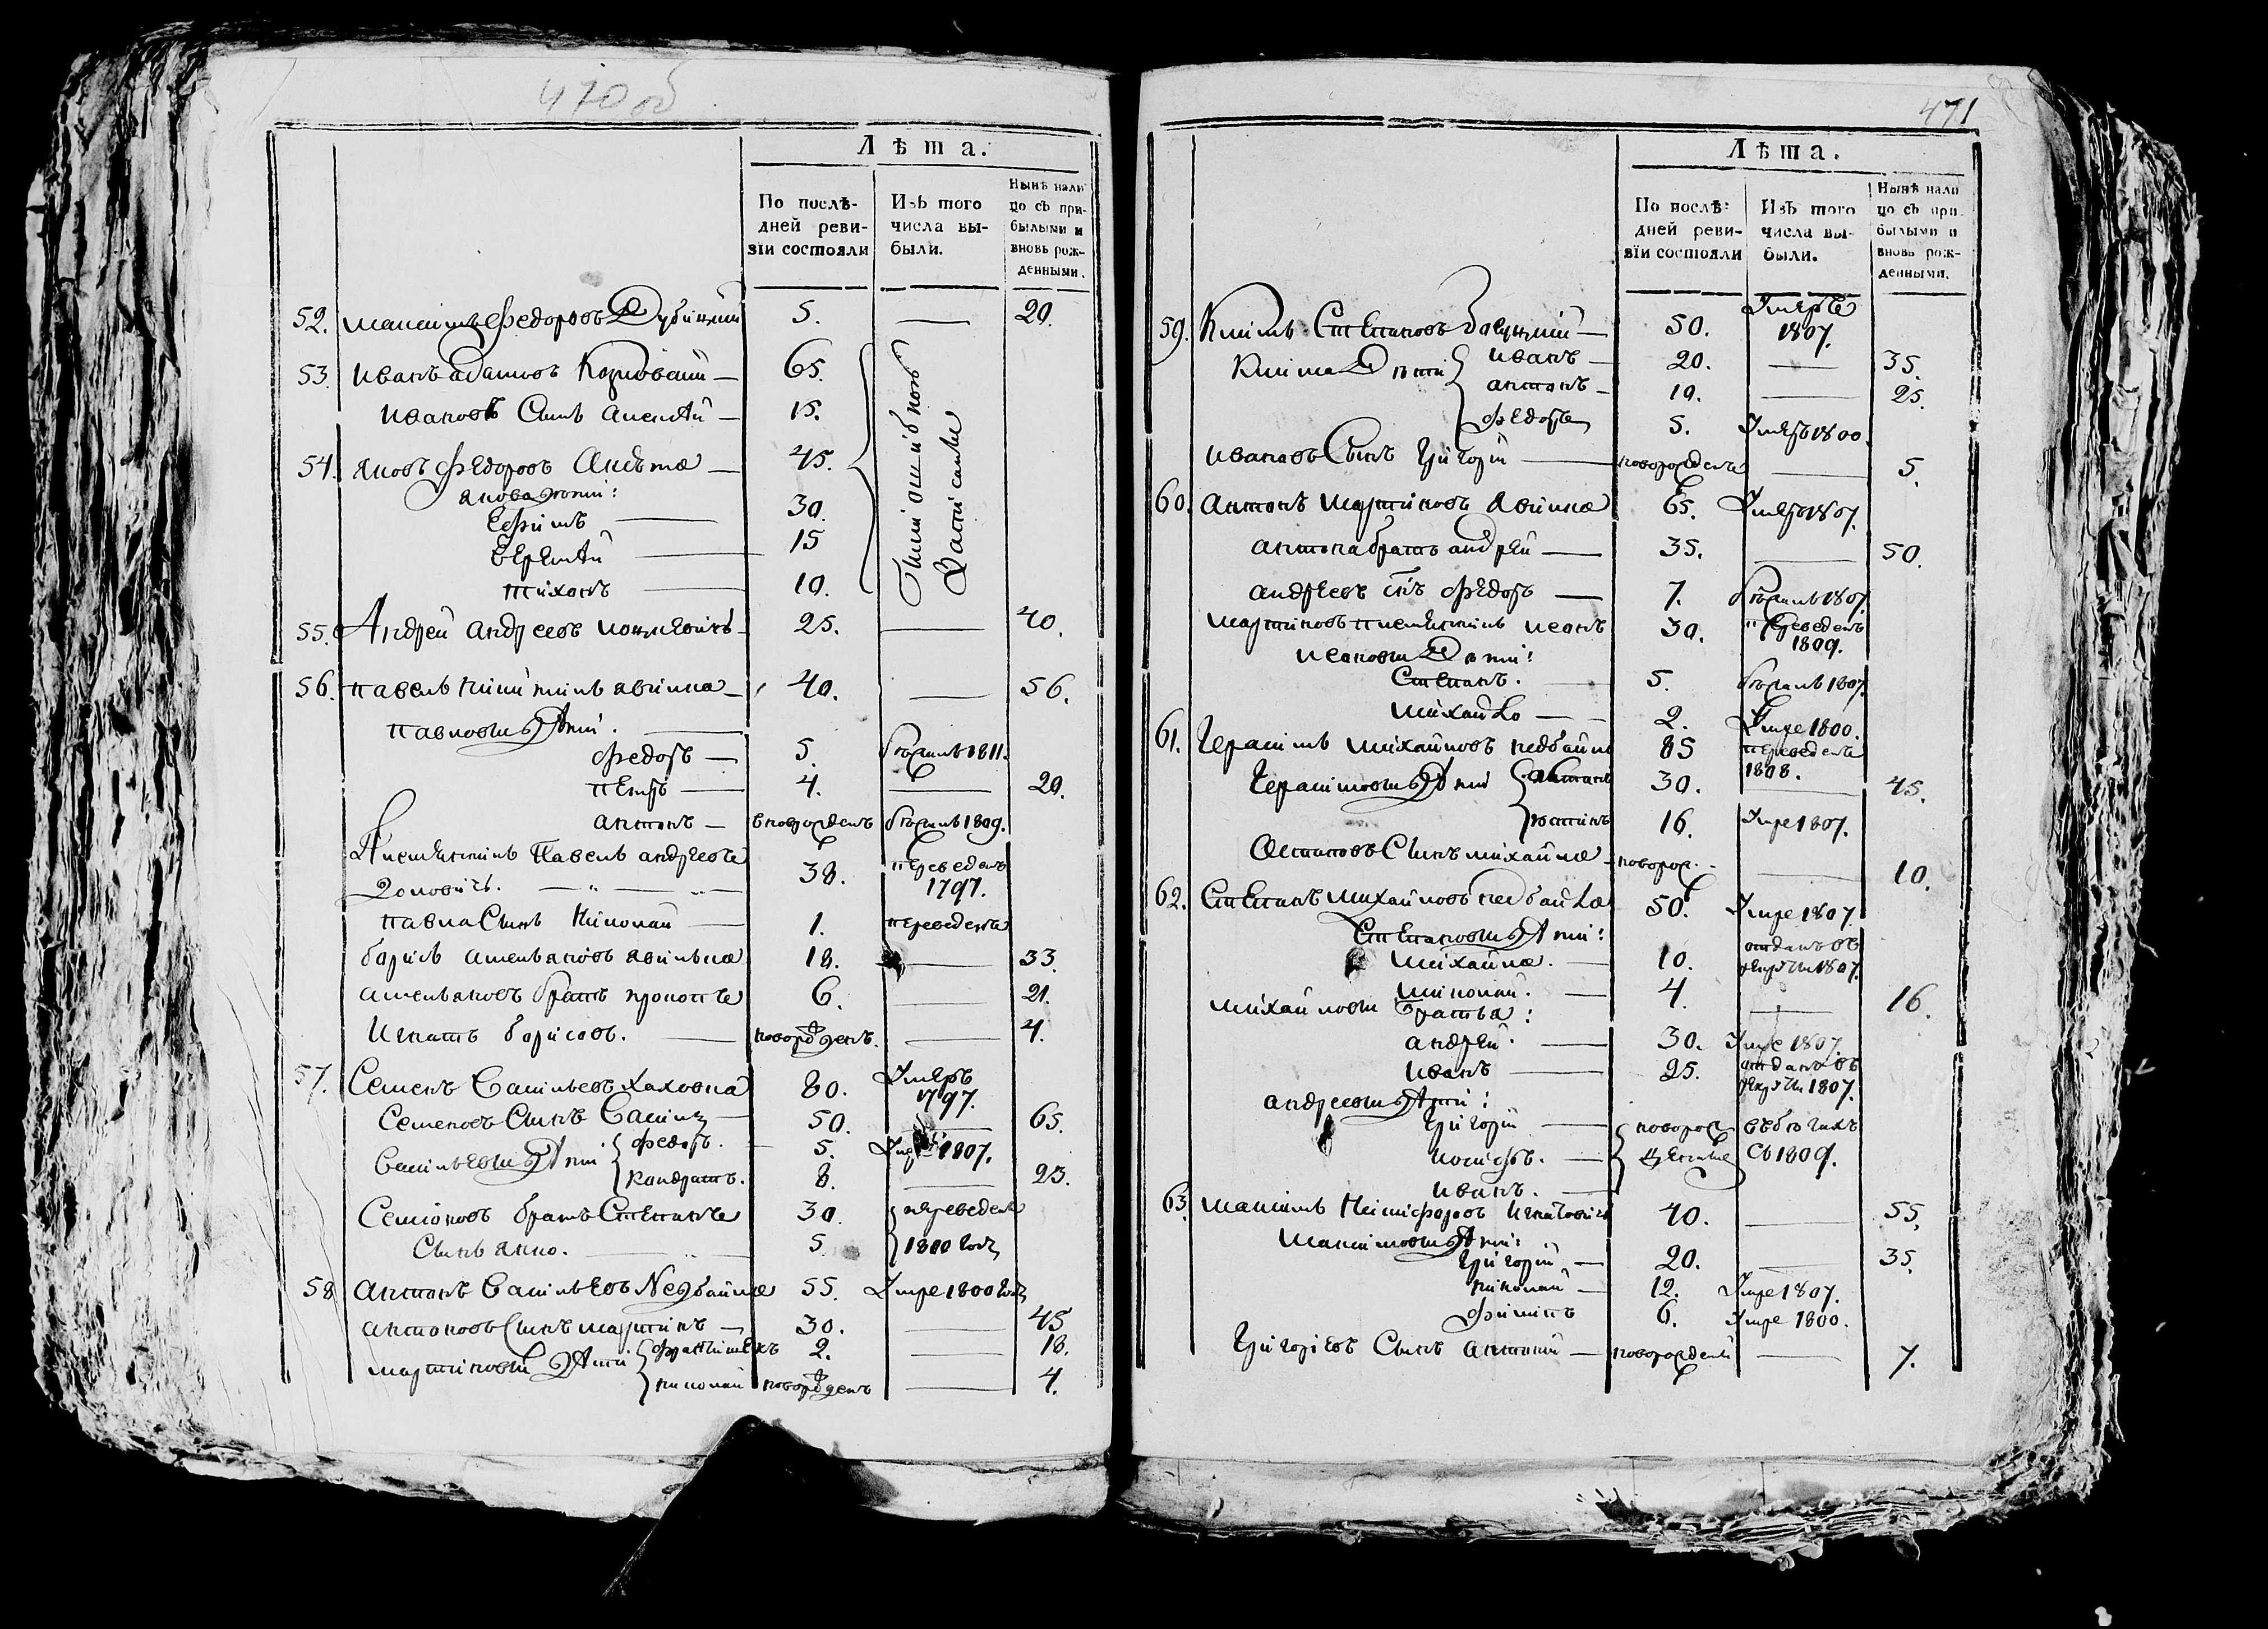 470 об
Лѣта.
По послѣ-
дней реви-
зіи состояли
Изъ того
числа вы-
были.
Нынѣ нали
цо съ при-
былыми и
вновь рож-
денными.
52. Максимъ Федоровъ Дубицкий 5. — 20.
53. Иванъ Адамовъ — 65.
Ивановъ Сынъ Алексѣй — 15.
54. Яковъ Федоровъ — 45.
Якова дѣти:
Ефимъ — 30.
Еремѣй — 15
Тихонъ — 10.
55. Андрей Андреевъ 25. — 40.
56. Павелъ Никитинъ Явилка — 40. — 56.
Павловы Дѣти.
Федоръ — 5. бѣжалъ 1811.
Петръ — 4. — 20.
Антонъ — новорожденъ бѣжалъ 1809.
Племянникъ Павелъ Андреевъ 38. переведенъ
1797.
Павла Сынъ Николай — 1. переведенъ
Борисъ 18. — 33.
братъ Прокопъ 6. — 21.
Игнатъ Борисовъ. — новорожденъ. — 4.
57. Семенъ Васильевъ 80. Умеръ
1797.
Семеновъ Сынъ Василь — 50. — 65.
Васильевы Дѣти Федоръ. — 5. 1807.
Кондратъ. 8. — 23.
Семеновъ братъ Степанъ 30. переведены
Сынъ Янко. — 5. 1800 году
58 Антонъ Васильевъ Недбайло 55. Умре 1800 году
Антоновъ Сынъ Мартинъ — 30. — 45
Мартиновы Дѣти 2. — 18.
Николай новорожденъ — 4.
471
Лѣта.
По послѣ-
дней реви-
зіи состояли
Изъ того
числа вы-
были.
Нынѣ нали
цо съ при-
былыми и
вновь рож-
денными.
59. Климъ Степановъ — 50. Умеръ
1807.
Клима Дѣти Иванъ — 20. — 35.
Антонъ — 10. — 25.
Федоръ 5. Умеръ 1800.
Ивановъ Сынъ Григорій — новорожденъ — 5.
60. Антонъ Мартиновъ Явилка 65. Умеръ 1807.
Антона братъ Андрей — 35. — 50.
Андреевъ сынъ Федоръ — 7. бѣжалъ 1807.
Мартиновъ племянникъ Иванъ 30. переведенъ
1809.
Ивановы Дѣти:
Степанъ. — 5. бѣжалъ 1807.
Михайло — 2. Умре 1800.
61. Герасимъ Михайловъ Недбайло 85 переведенъ
1808.
Герасимовы Дѣти 30. — 45.
16. Умре 1807.
Сынъ Михайла — новорож. — 10.
62. Степанъ Михайловъ Недбайло 50. Умре 1807.
Степановы Дѣти:
Михайла. — 10. отданъ въ
рекруты 1807.
Николай. — 4. — 16.
Михайловы Братья:
Андрей. — 30. Умре 1807.
Иванъ — 25. отданъ въ
рекруты 1807.
Андреевы Дѣти:
Григорій — новорож въ бѣгахъ
Іосифъ. — денные Съ 1809.
Иванъ. —
63. Максимъ Никифоровъ 40. — 55.
Максимовы Дѣти:
Григорій — 20. — 35.
Николай — 12. Умре 1807.
Филипъ 6. Умре 1800.
Григоріевъ Сынъ Антоній — новорожденъ — 7.